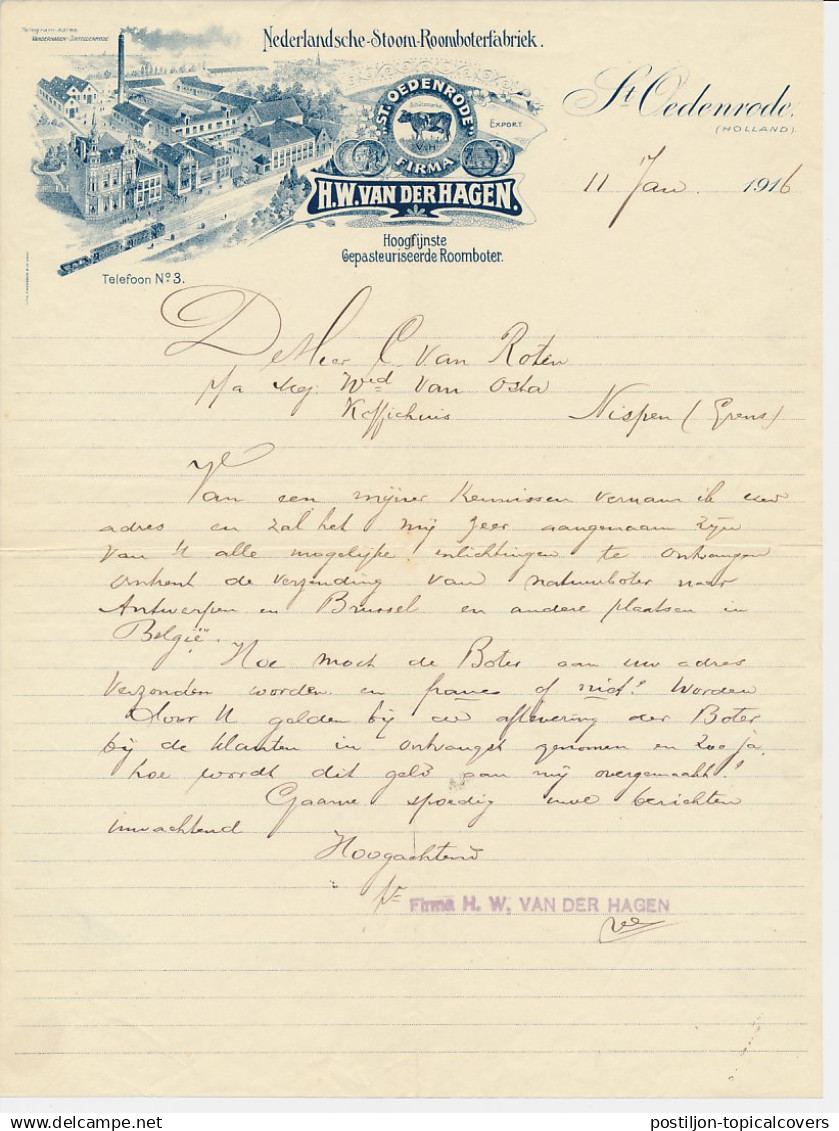 Telegram-Adres:
VANDERHAGEN-SINTOEDENRODE
Nederlandsche-Stoom-Roomboterfabriek.
"ST. OEDENRODE"
EXPORT
FIRMA
H.W. VAN DER HAGEN.
Hoogfijnste
Gepasteuriseerde Roomboter.
Telefoon No 3.
St. Oedenrode.
(HOLLAND)
11 Jan. 1916
De Heer C. van Roten
p/a Mej: Wed van Osta
Koffiehuis Nispen (Grens)
Van een mijner Kennissen vernam ik uw
adres en zal het mij zeer aangenaam zijn
van U alle mogelijke inlichtingen te ontvangen
omtrent de verzending van natuurboter naar
Antwerpen en Brussel en andere plaatsen in
België.
Hoe moet de Boter aan uw adres
verzonden worden en franco of niet? Worden
door U gelden bij de aflevering der Boter
bij de klanten in ontvangst genomen en zoo ja
hoe wordt dit geld aan mij overgemaakt?
Gaarne spoedig uwe berichten
inwachtend
Hoogachtend
pr Firma H. W. VAN DER HAGEN
postiljon-topicalcovers